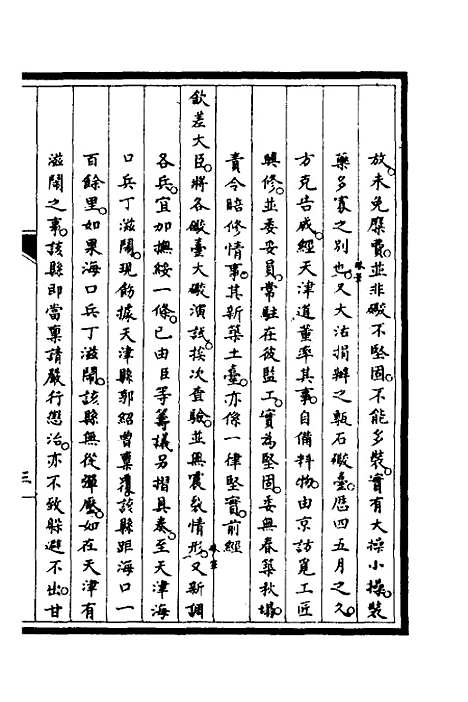 放。未免糜費。並非礮不堅固。不能多裝。實有大操小操。裝
藥多寡之別也。又大沽捐辦之甎石礮臺。歷四五月之久。
方克告成。經天津道董率其事。自備料物。由京訪覓工匠
興修。並委委員。常駐在彼監工。實為堅固。委無春築秋塌。
責令賠修情事。其新築土臺。亦係一律堅實。前經
欽差大臣。將各礮臺大礮演試。挨次查驗。並無震裂情形。又新調
各兵。宜加撫綏一條。已由臣等籌議另摺具奏。至天津海
口兵丁滋鬧。現飭據天津縣郭紹曹稟覆。該縣距海口一
百餘里。如果海口兵丁滋鬧。該縣無從彈壓。如在天津有
滋鬧之事。該縣即當稟請嚴行懲治。亦不致躲避不出。甘
三